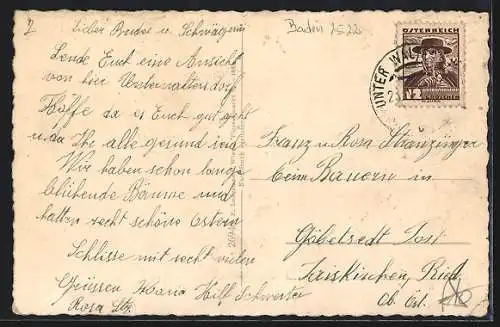 2
Lieber Bruder u. Schwägerin
Baden 2522
Sende Euch eine Ansicht
von hier Unterwaltersdorf
Hoffe da es Euch gut geht
u. das Ihr alle gesund sind
Wir haben schon lange
blühende Bäume und
hatten recht schöne Ostern
Schlisse mit recht vielen
Grüssen Maria Hilf Schwester
Rosa
ÖSTERREICH
12
UNTER WAL
Franz u Rosa Stranzinger
beim Bauern in
Göbetsedt Post
Taiskirchen, Ried
Ob. Öst.